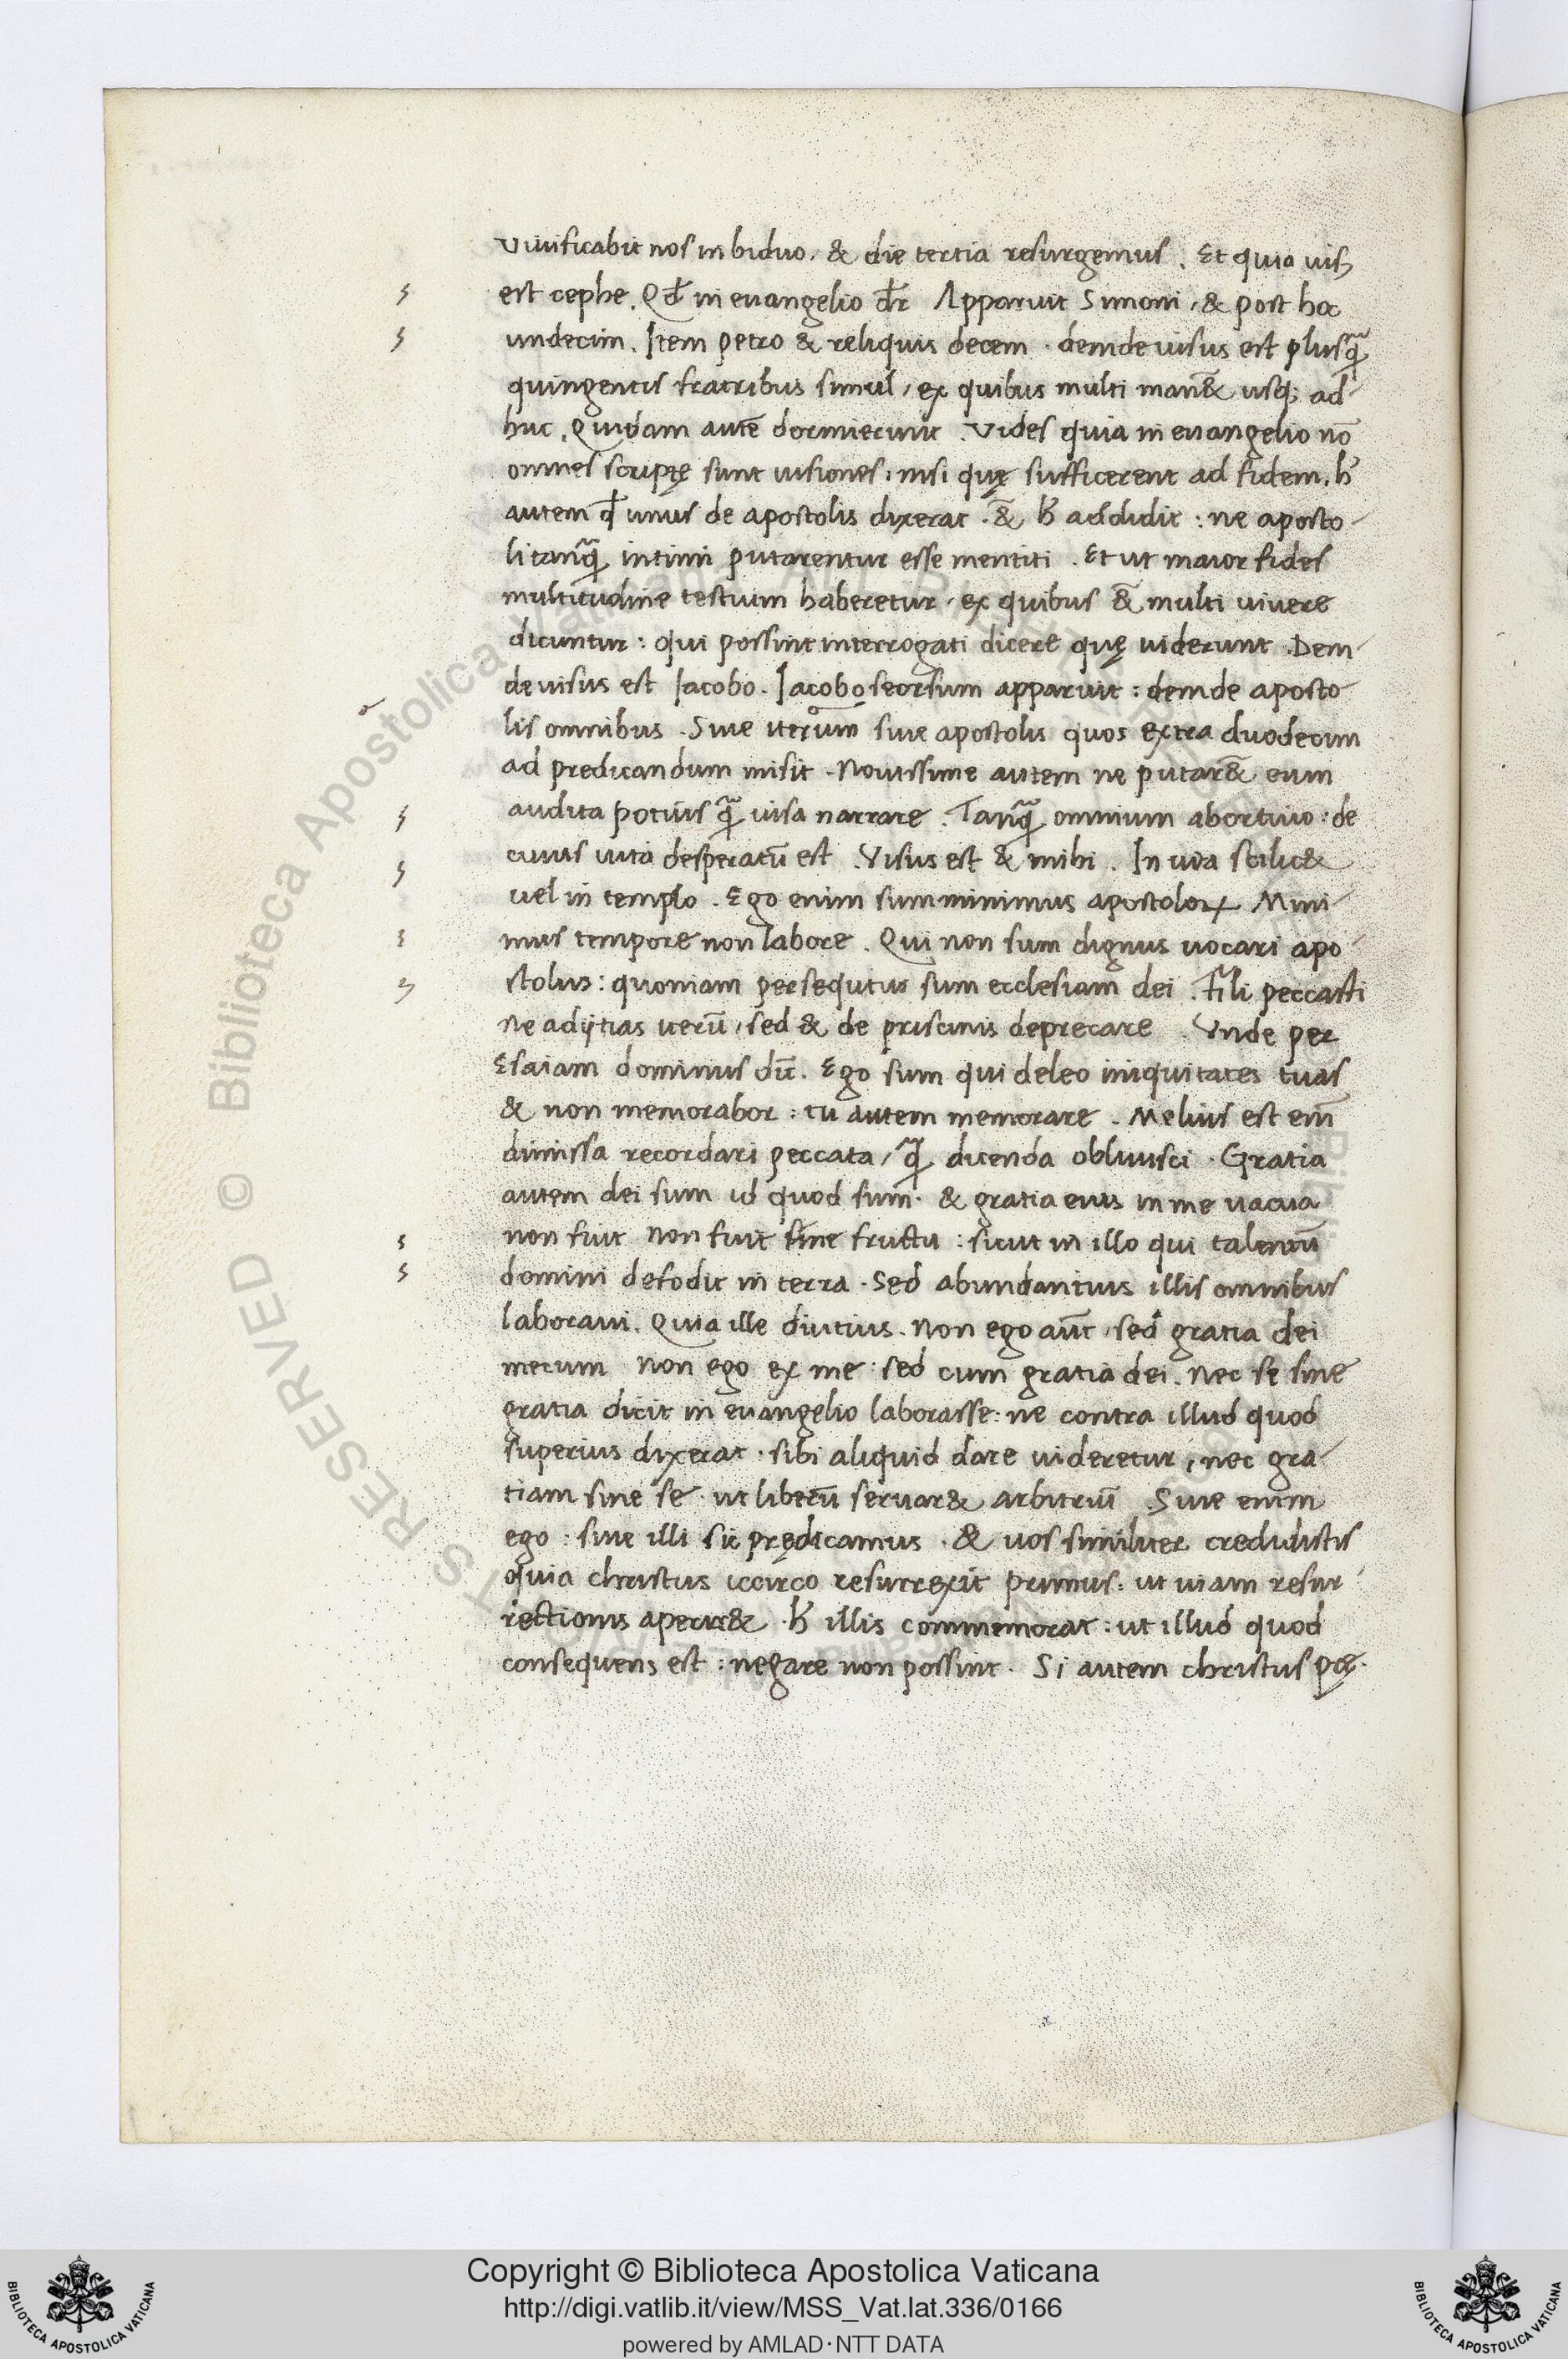 Viuificabit nos in biduo. & die tertia resurgemus. Et quia uisꝫ
est cephe. Qđ in euangelio dr̄ Apparuit Simoni, & post hoc
undecim. Item petro & reliquis decem. deinde uisus est plusq̄
quingentis fratribus simul, ex quibus multi man& usq; ad
huc. Quidam autē dormierunt. Vides quia in euangelio nō
omnes scriptę sunt uisiones: nisi quę sufficerent ad fidem. h̄
autem qđ unus de apostolis dixerat. &̄ h̄ addidit: ne aposto
li tanq̄ intimi putarentur esse mentiti. Et ut maior fides
multitudine testium haberetur, ex quibus &̄ multi uiuere
dicuntur: qui possint interrogati dicere quę uiderunt. Dein
de uisus est Iacobo. Iacobo seorsum apparuit: deinde aposto
lis omnibus. Siue iterum siue apostolis quos extra duodecim
ad predicandum misit. Nouissime autem ne putar& eum
audita potius q̄ uisa narrare. Tanq̄ omnium abortiuo: de
cuius uita desperatū est. Visus est & mihi. In uia scilic&
uel in templo. Ego enim sum minimus apostoloꝝ Mini
mus tempore non labore. Qui non sum dignus uocari apo
stolus: quoniam persequtus sum ecclesiam dei. Fili peccasti
ne adijcias iterū, sed & de priscinis deprecare. Vnde per
Esaiam dominus dic̄. Ego sum qui deleo iniquitates tuas
& non memorabor: tu autem memorare. Melius est eni̅
dimissa recordari peccata, q̄ dicenda obliuisci. Gratia
autem dei sum id quod sum. & gratia eius in me uacua
non fuit Non fuit sine fructu: sicut in illo qui talentū
domini defodit in terra. Sed abundantius illis omnibus
laboraui. Quia ille diutius. Non ego aut̄, sed gratia dei
mecum Non ego ex me: sed cum gratia dei. Nec se sine
gratia dicit in euangelio laborasse: ne contra illud quod
superius dixerat. sibi aliquid dare uideretur, nec gra
tiam sine se. ut liberū seruar& arbitriū. Siue enim
ego: siue illi sic prędicamus. & uos similiter credidistis
quia christus iccirco resurrexit primus. ut uiam resur
rectionis aperir&. h̄ illis commemorat: ut illud quod
consequens est: negare non possint. Si autem christus pᵒę.
Copyright © Biblioteca Apostolica Vaticana
http://digi.vatlib.it/view/MSS_Vat.lat.336/0166
powered by AMLAD·NTT DATA